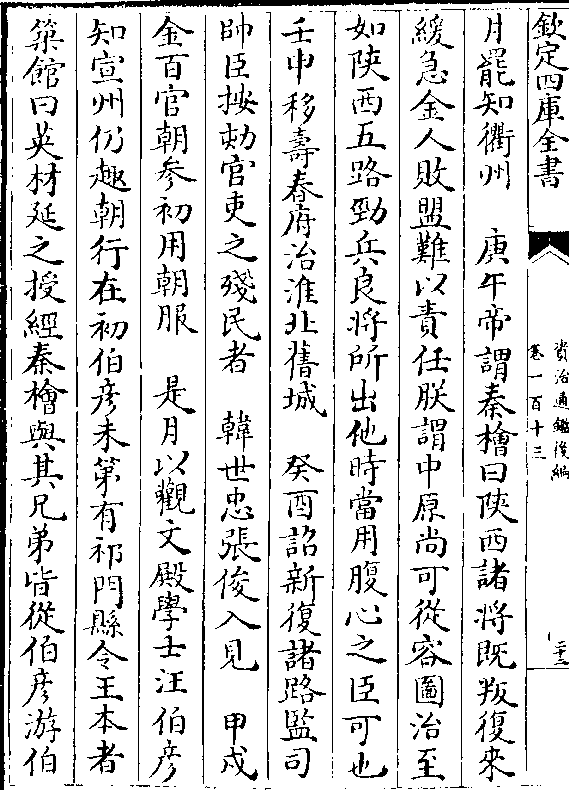 欽定四庫全書
資治通鑑後編
卷一百十三
月罷知衢州　庚午帝謂秦檜曰陜西諸將既叛復來
緩急金人敗盟難以責任朕謂中原尚可從容圖治至
如陜西五路勁兵良將所出他時當用腹心之臣可也
壬申移壽春府治淮北舊城　癸酉詔新復諸路監司
帥臣按劾官吏之殘民者　韓世忠張俊入見　甲戌
金百官朝參初用朝服　是月以觀文殿學士汪伯彦
知宣州仍趣朝行在初伯彦未第有祁門縣令王本者
築館曰英材延之授經秦檜與其兄弟皆從伯彦游伯